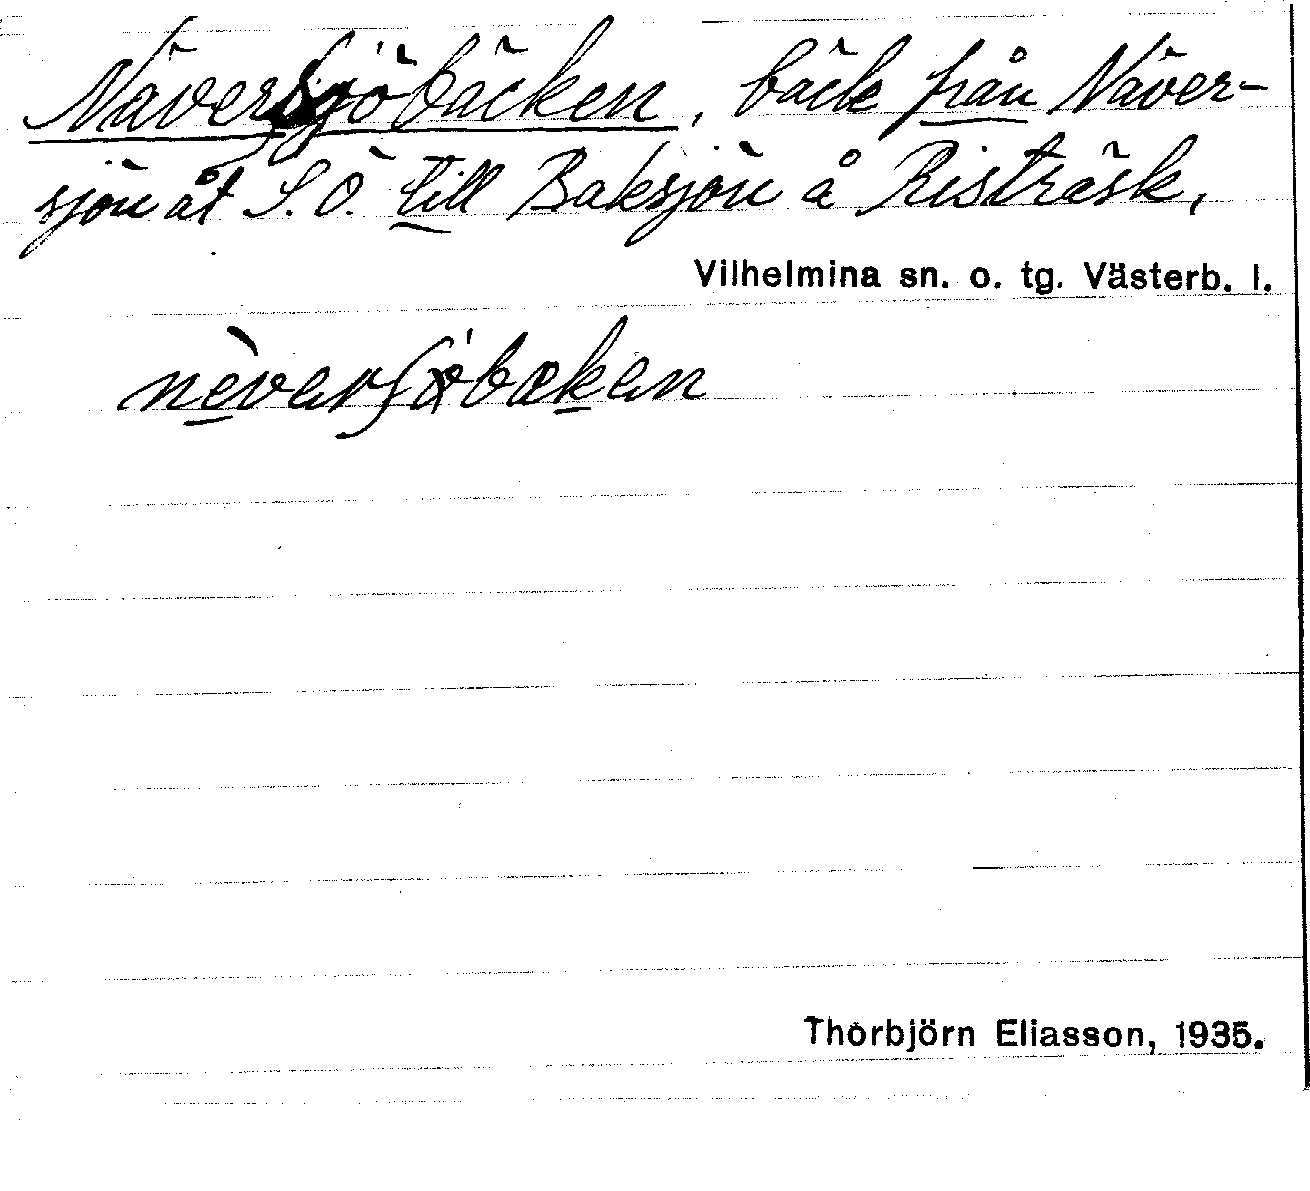 Näversjöbäcken, bäck från Näver-
sjön åt S.Ö. till Baksjön å Risträsk,
Vilhelmina sn. o. tg. Västerb. l.
nèverʃöbæken
Thorbjörn Eliasson, 1935.